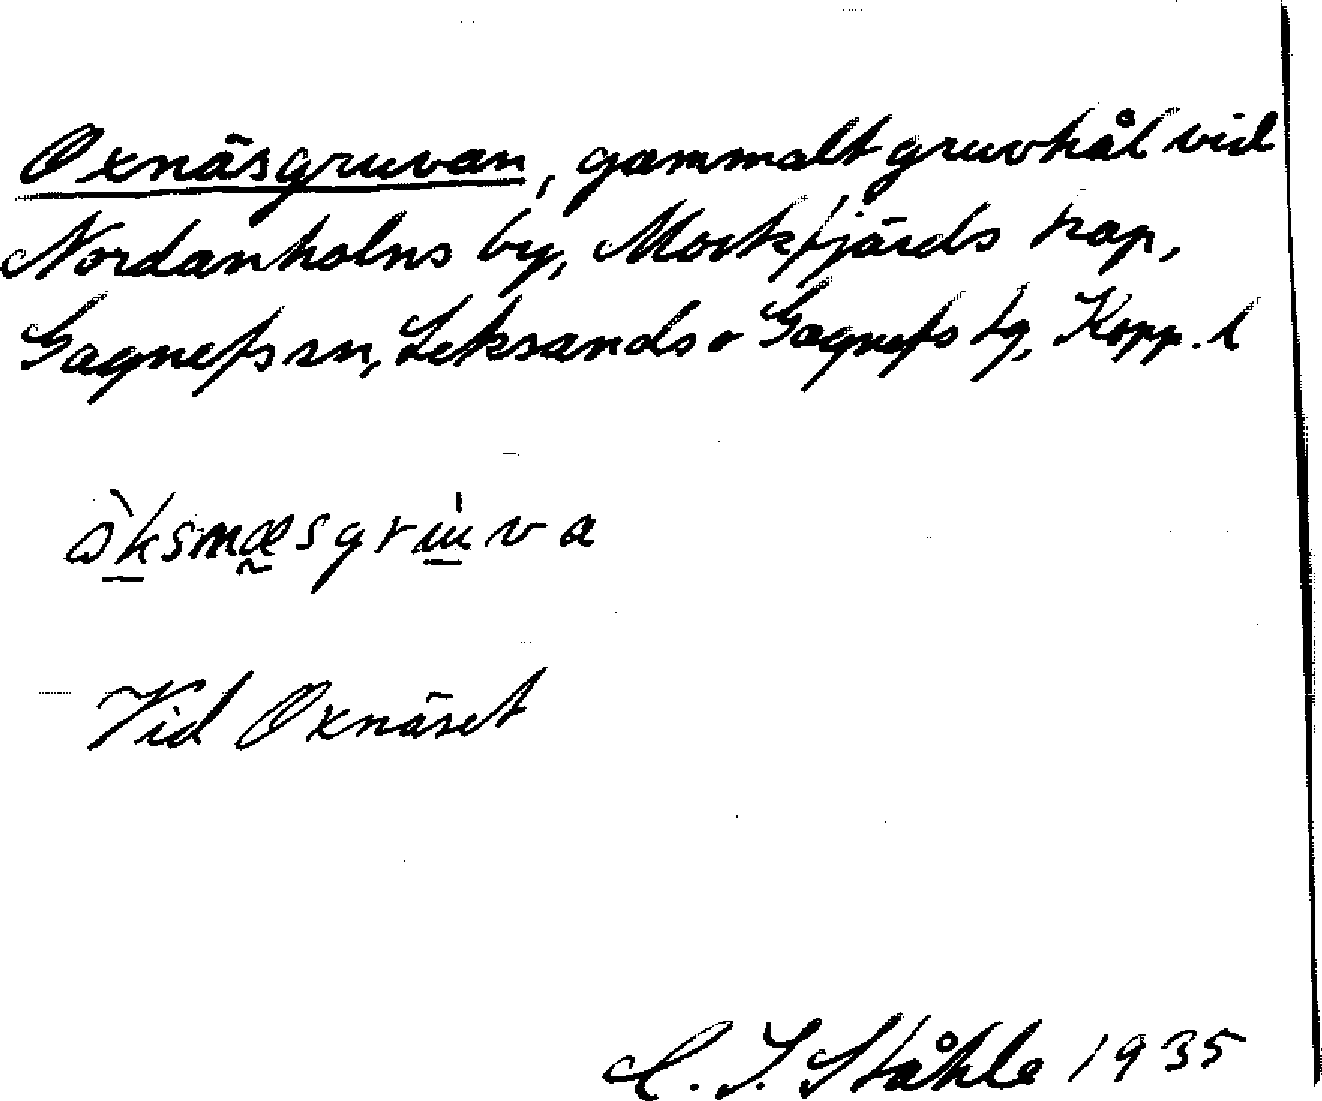 Oxnäsgruvan, gammalt gruvhål vid
Nordanholns by, Mockfjärds kap,
Gagnefs sn, Leksands o Gagnefs tg, Kopp. l
Vid Oxnäset
C. I. Ståhle 1935